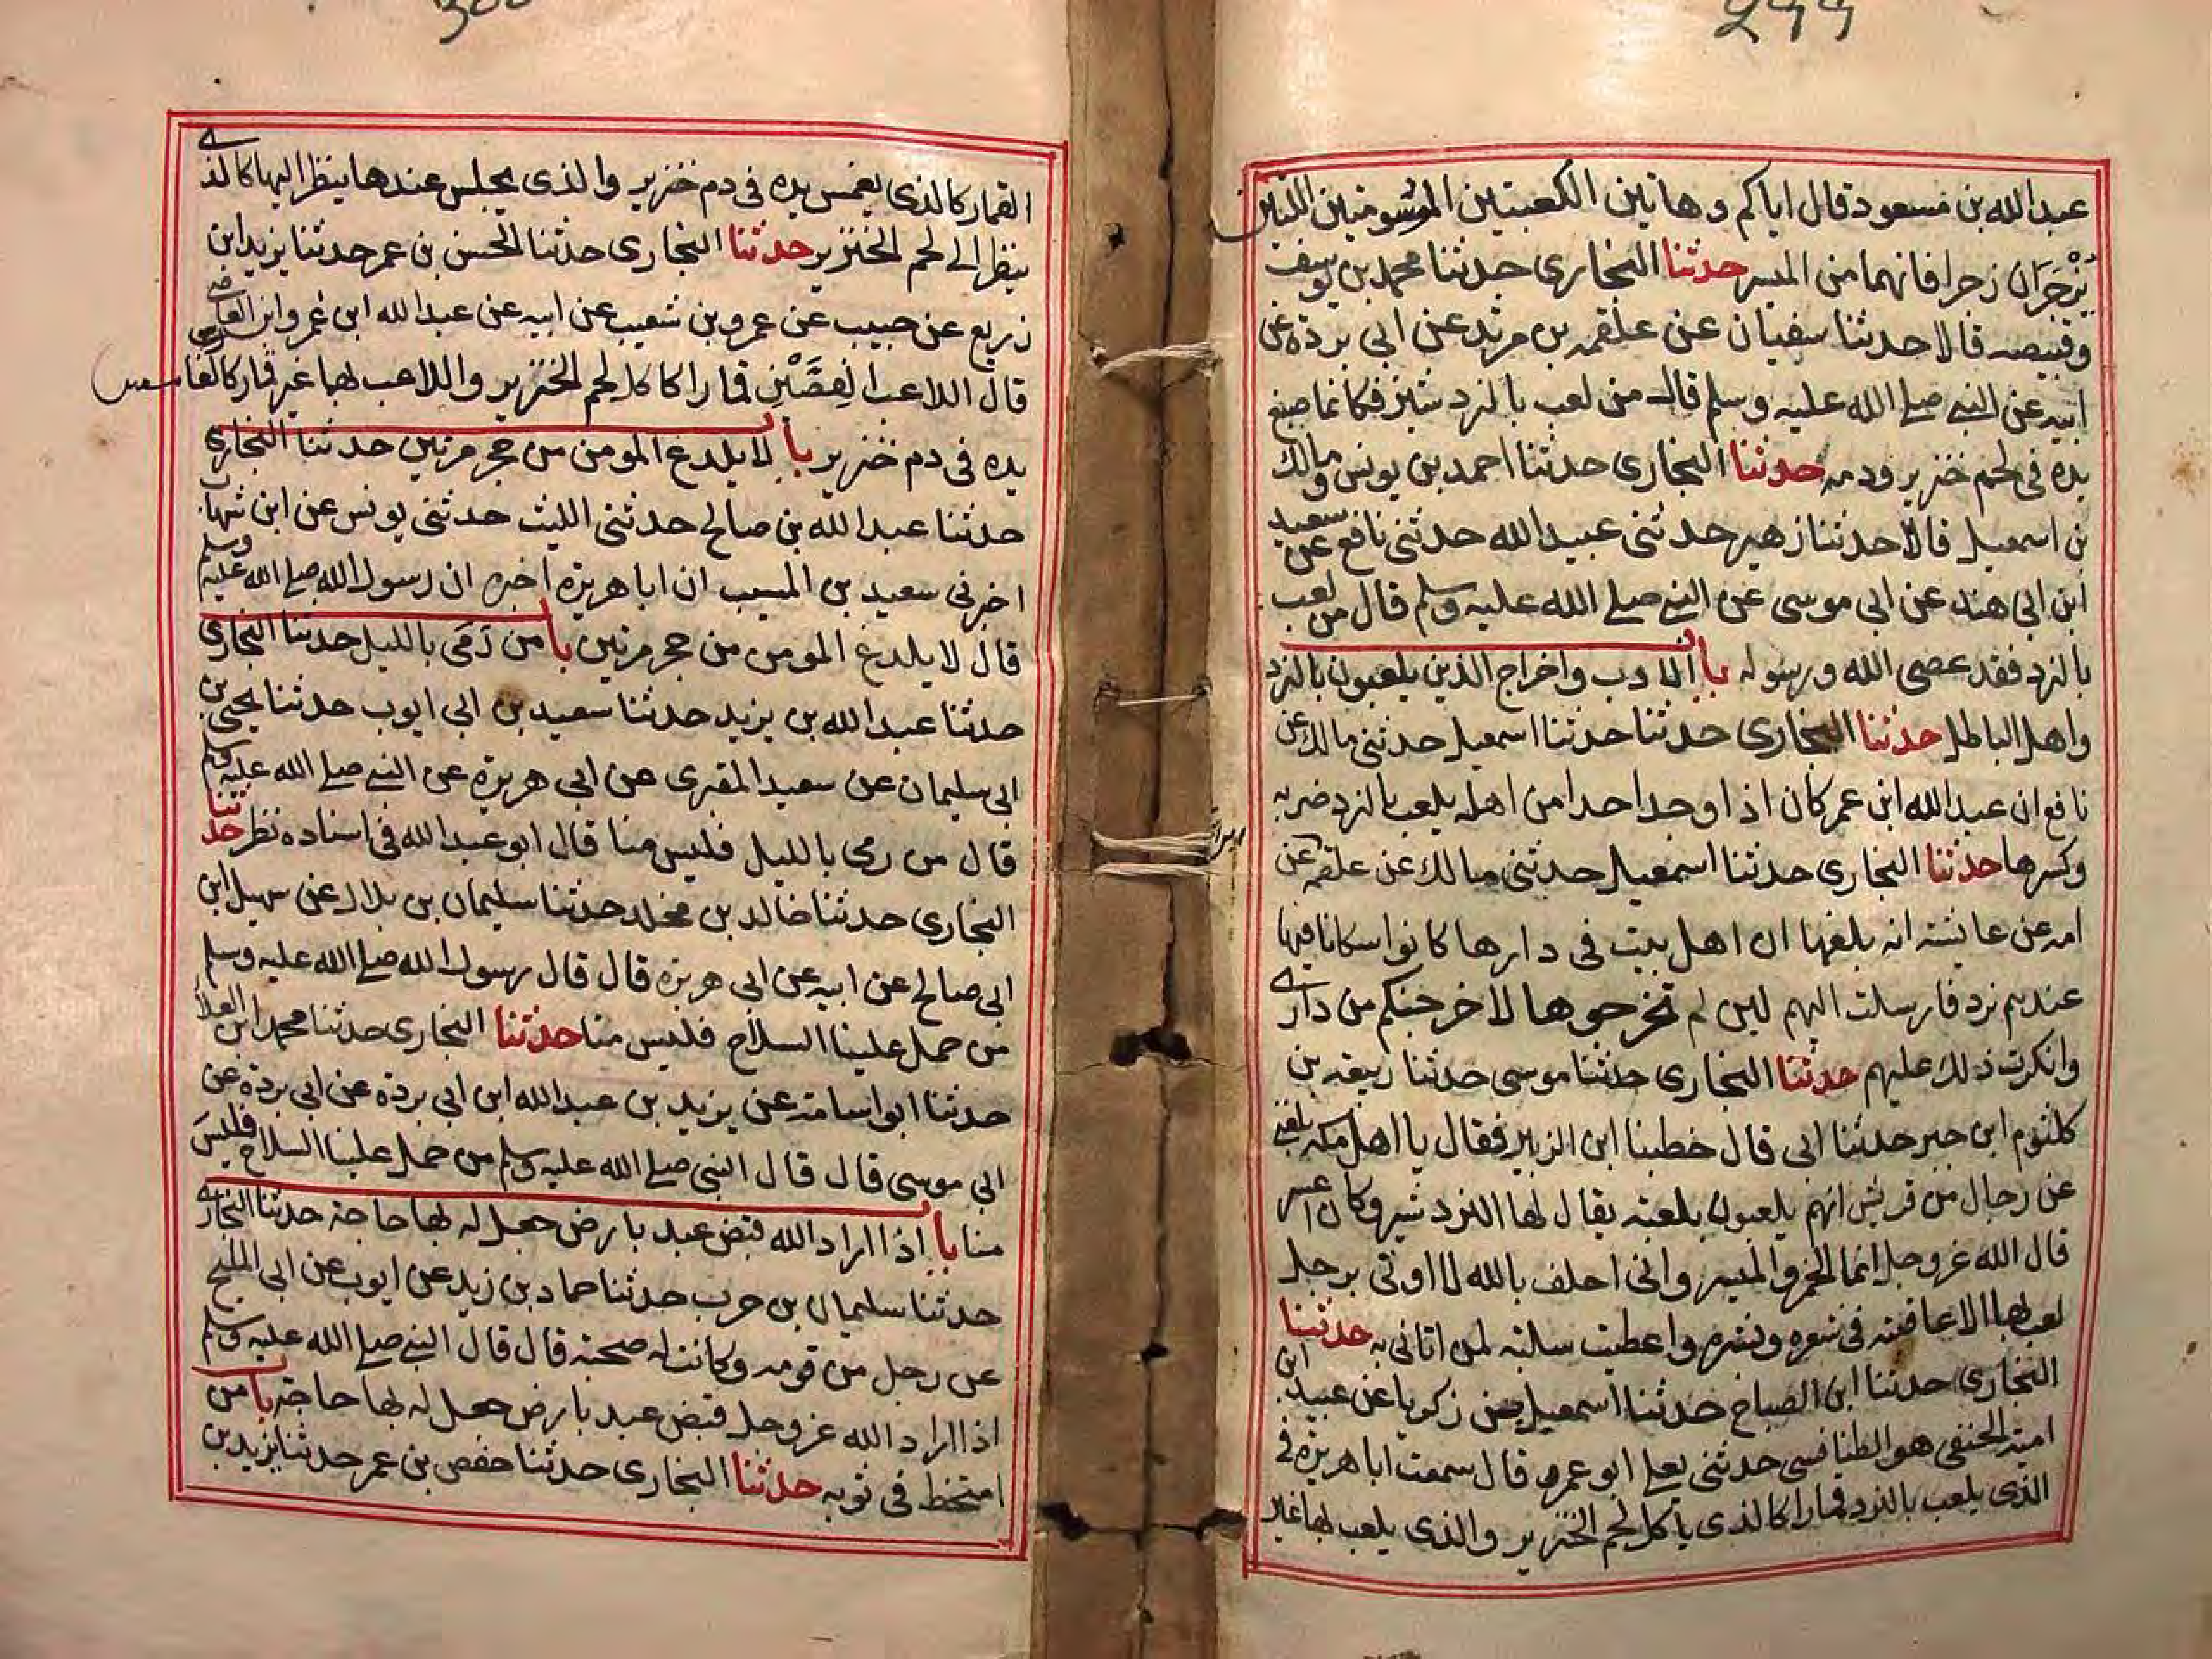 ٢٩٩
عبد الله بن مسعود قال اياكم وهاتين الكعبتين الموسومتين اللتين
تزجران زجرا فانهما من الميسر حدثنا البخارى حدثنا محمد بن يوسف
وقبيصه قالا حدثنا سفيان عن علقمه بن مرثد عن ابى بردة عن
ابيه عن النبي صلى الله عليه وسلم قال من لعب بالنرد شير فكانما صبغ
يده فى لحم خنزير ودمه حدثنا البخارى حدثنا احمد بن يونس ومالك
بن اسمعيل قالا حدثنا زهير حدثنى عبيد الله حدثنى نافع عن سعيد
ابن ابى هند عن ابى موسى عن النبي صلى الله عليه وسلم قال من لعب
بالنرد فقد عصى الله ورسوله باب الادب واخراج الذين يلعبون بالنرد
واهل الباطل حدثنا البخارى حدثنا حدثنا اسمعيل حدثنى مالك عن
نافع ان عبد الله ابن عمر كان اذا وجد احدا من اهله يلعب بالنرد ضربه
وكسرها حدثنا البخارى حدثنا اسمعيل حدثنى مالك عن علقمه عن
امه عن عائشته انه بلغها ان اهل بيت فى دارها كانوا سكانا فيها
عندهم نرد فارسلت اليهم لين لم تخرجوها لاخرجنكم من دارى
وانكرت ذلك عليهم حدثنا البخارى حدثنا موسى حدثنا ربيعه بن
كلثوم ابن جبر حدثنا ابى قال خطبنا ابن الزبير فقال يا اهل مكه بلغنى
عن رجال من قريش انهم يلعبون بلعبته يقال لها النرد شير وكان اعسر
قال الله عز وجل انما الخمر والميسر وانى احلف بالله لا اوتى برجل
لعب بها الا عاقبته فى شعره وبشره واعطيت سلبته لمن اتانى به حدثنا
البخارى حدثنا ابن الصباح حدثنا اسمعيل بن زكريا عن عبيد ابن
امية الحنفى هو الطنافسى حدثنى يعلى ابو عمره قال سمعت ابا هريرة فى
الذى يلعب بالنرد قمارا كالذى ياكل لحم الخنزير والذى يلعب بها غير
300
القمار كالذى يغمس يده فى دم خنزير والذى يجلس عندها ينظر اليها كالذى
ينظر الى لحم الخنزير حدثنا البخارى حدثنا الحسن بن عمر حدثنا يزيد ابن
زريع عن حبيب عن عمرو بن شعيب عن ابيه عن عبد الله ابن عمرو ابن العاصى
قال اللاعب الفصين قمارا كاكل لحم الخنزير واللاعب بها غير قمار كالغامس
يده فى دم خنزير باب لا يلدغ المومن من حجر مرتين حدثنا البخارى
حدثنا عبد الله بن صالح حدثنى الليث حدثنى يونس عن ابن شهاب
اخبرنى سعيد بن المسيب ان ابا هريرة اخبره ان رسول الله صلى الله عليه وسلم
قال لا يلدغ المومن من حجر مرتين باب من رمى بالليل حدثنا البخارى
حدثنا عبد الله بن يزيد حدثنا سعيد بن ابى ايوب حدثنا يحيى بن
ابى سليمان عن سعيد المقبرى عن ابى هريرة عن النبي صلى الله عليه وسلم
قال من رمى بالليل فليس منا قال ابو عبد الله فى اسناده نظر حدثنا
البخارى حدثنا خالد بن مخلد حدثنا سليمان بن بلال عن سهيل ابن
ابى صالح عن ابيه عن ابى هريرة قال قال رسول الله صلى الله عليه وسلم
من حمل علينا السلاح فليس منا حدثنا البخارى حدثنا محمد ابن العلا
حدثنا ابو اسامته عن يزيد بن عبد الله ابن ابى بردة عن ابى بردة عن
ابى موسى قال قال النبى صلى الله عليه وسلم من حمل علينا السلاح فليس
منا باب اذا اراد الله قبض عبد بارض جعل له بها حاجة حدثنا البخارى
حدثنا سليمان بن حرب حدثنا حماد بن زيد عن ايوب عن ابى المليح
عن رجل من قومه وكانت له صحبته قال قال النبي صلى الله عليه وسلم
اذا اراد الله عز وجل قبض عبد بارض جعل له بها حاجة باب من
امتخط فى ثوبه حدثنا البخارى حدثنا حفص بن عمر حدثنا يزيد بن